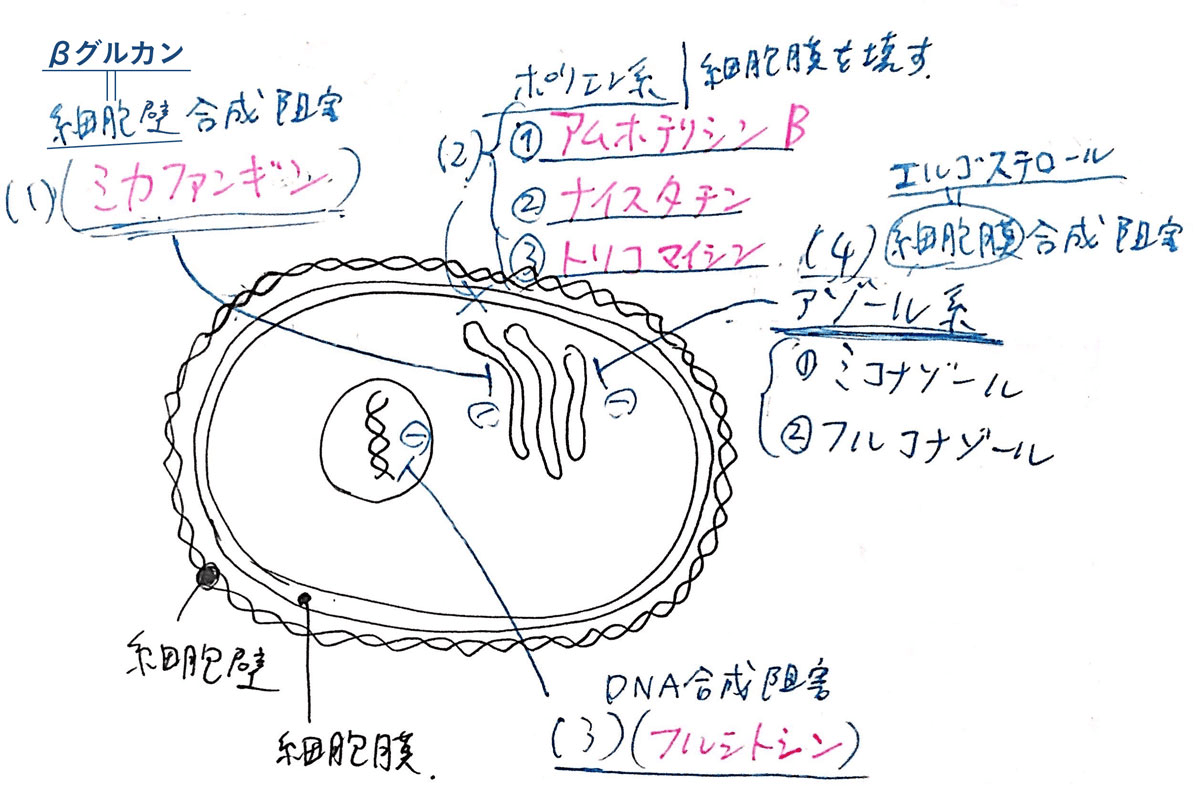 βグルカン
細胞壁 合成阻害
(1)(ミカファンギン)
ポリエン系 | 細胞膜を壊す.
(2) ① アムホテリシン B
② ナイスタチン
③ トリコマイシン
エルゴステロール
(4) 細胞膜 合成阻害
アゾール系
① ミコナゾール
② フルコナゾール
㊀
㊀
㊀
細胞壁
細胞膜.
DNA合成阻害
(3)(フルシトシン)